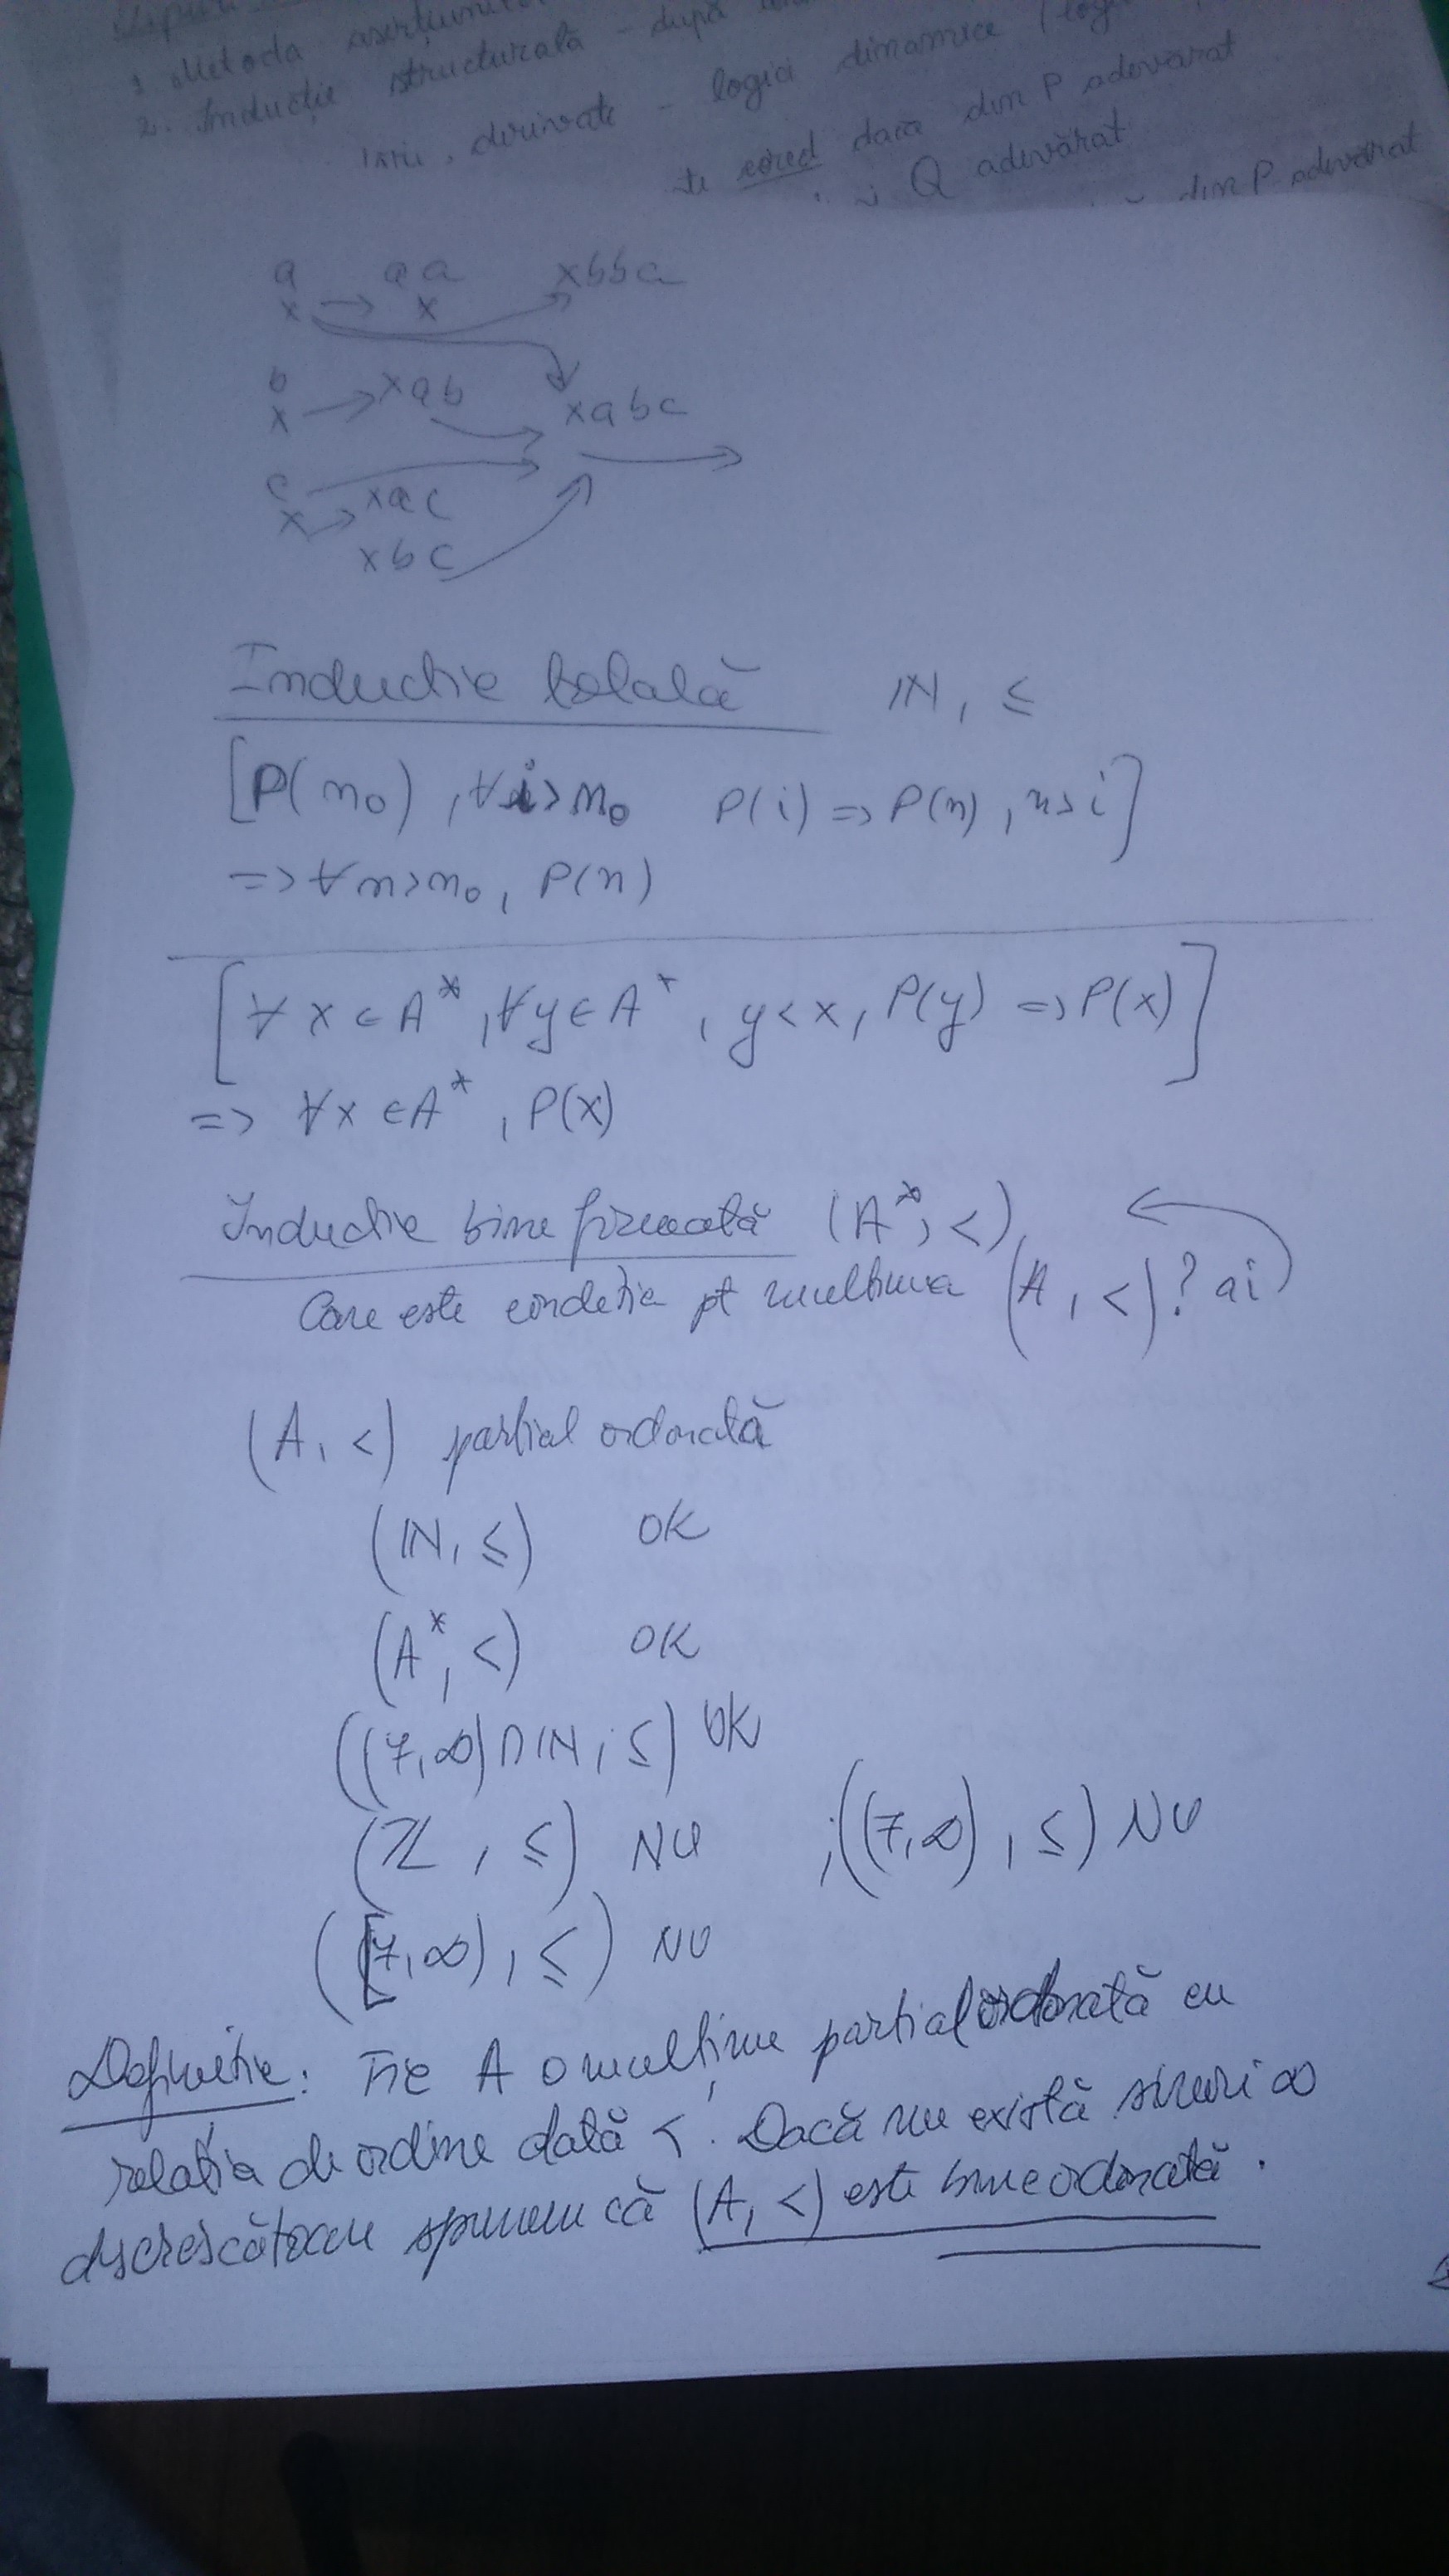 1. Metoda
2. Inducție structurală - după
derivate - logici dinamice (logi
corect dacă din P adevărat
Q adevărat
din P adevărat
a aa xbba
x → x
b
x → xab xabc
c
x → xac
xbc
Inductie totală IN, ≤
[P(n₀), ∀i>n₀ P(i) => P(n), n>i]
=> ∀n>n₀, P(n)
[∀x∈A*, ∀y∈A*, y<x, P(y) => P(x)]
=> ∀x∈A*, P(x)
Inductie bine formată (A*, <)
Care este conditia pt multimea (A, <)? ai
(A, <) partial ordonată
(IN, ≤) OK
(A*, <) OK
((7,∞)∩IN, ≤) OK
(ℤ, ≤) NU ; ((7,∞), ≤) NU
([7,∞), ≤) NU
Definitie: Fie A o mulțime partial ordonată cu
relația de ordine dată <. Dacă nu există siruri ∞
discrescătoare spunem că (A, <) este bine ordonată.